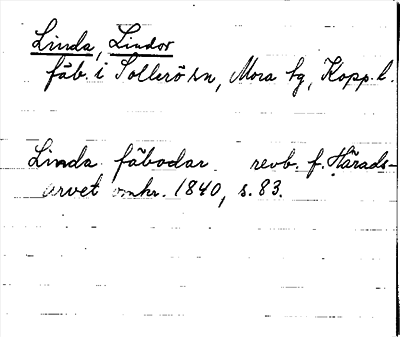 Linda, Lindor
fäb. i Sollerö sn, Mora tg, Kopp. l.
Linda fäbodar revb. f. Härads-
arvet omkr. 1840, s. 83.